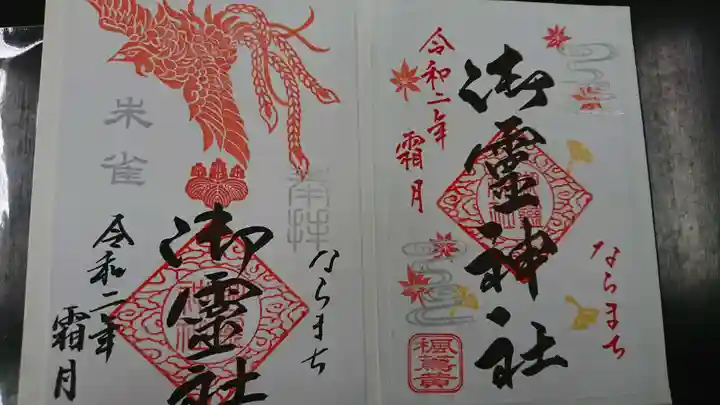 令和二年
霜月
御靈神社
ならまち
朱雀
奉拝
御靈社
ならまち
令和二年
霜月